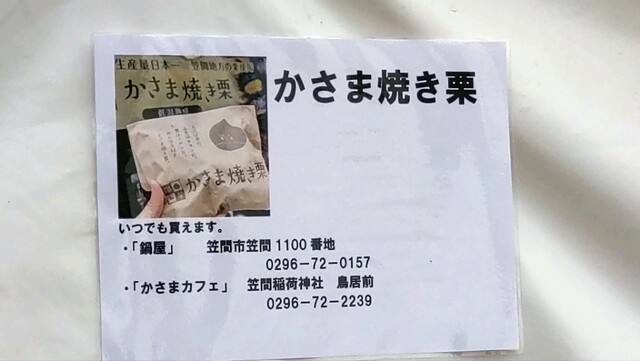 かさま焼き栗
生産量日本一
かさま焼き栗
低温熟成
かさま焼き栗
いつでも買えます。
・「鍋屋」　笠間市笠間1100番地
0296-72-0157
・「かさまカフェ」　笠間稲荷神社　鳥居前
0296-72-2239